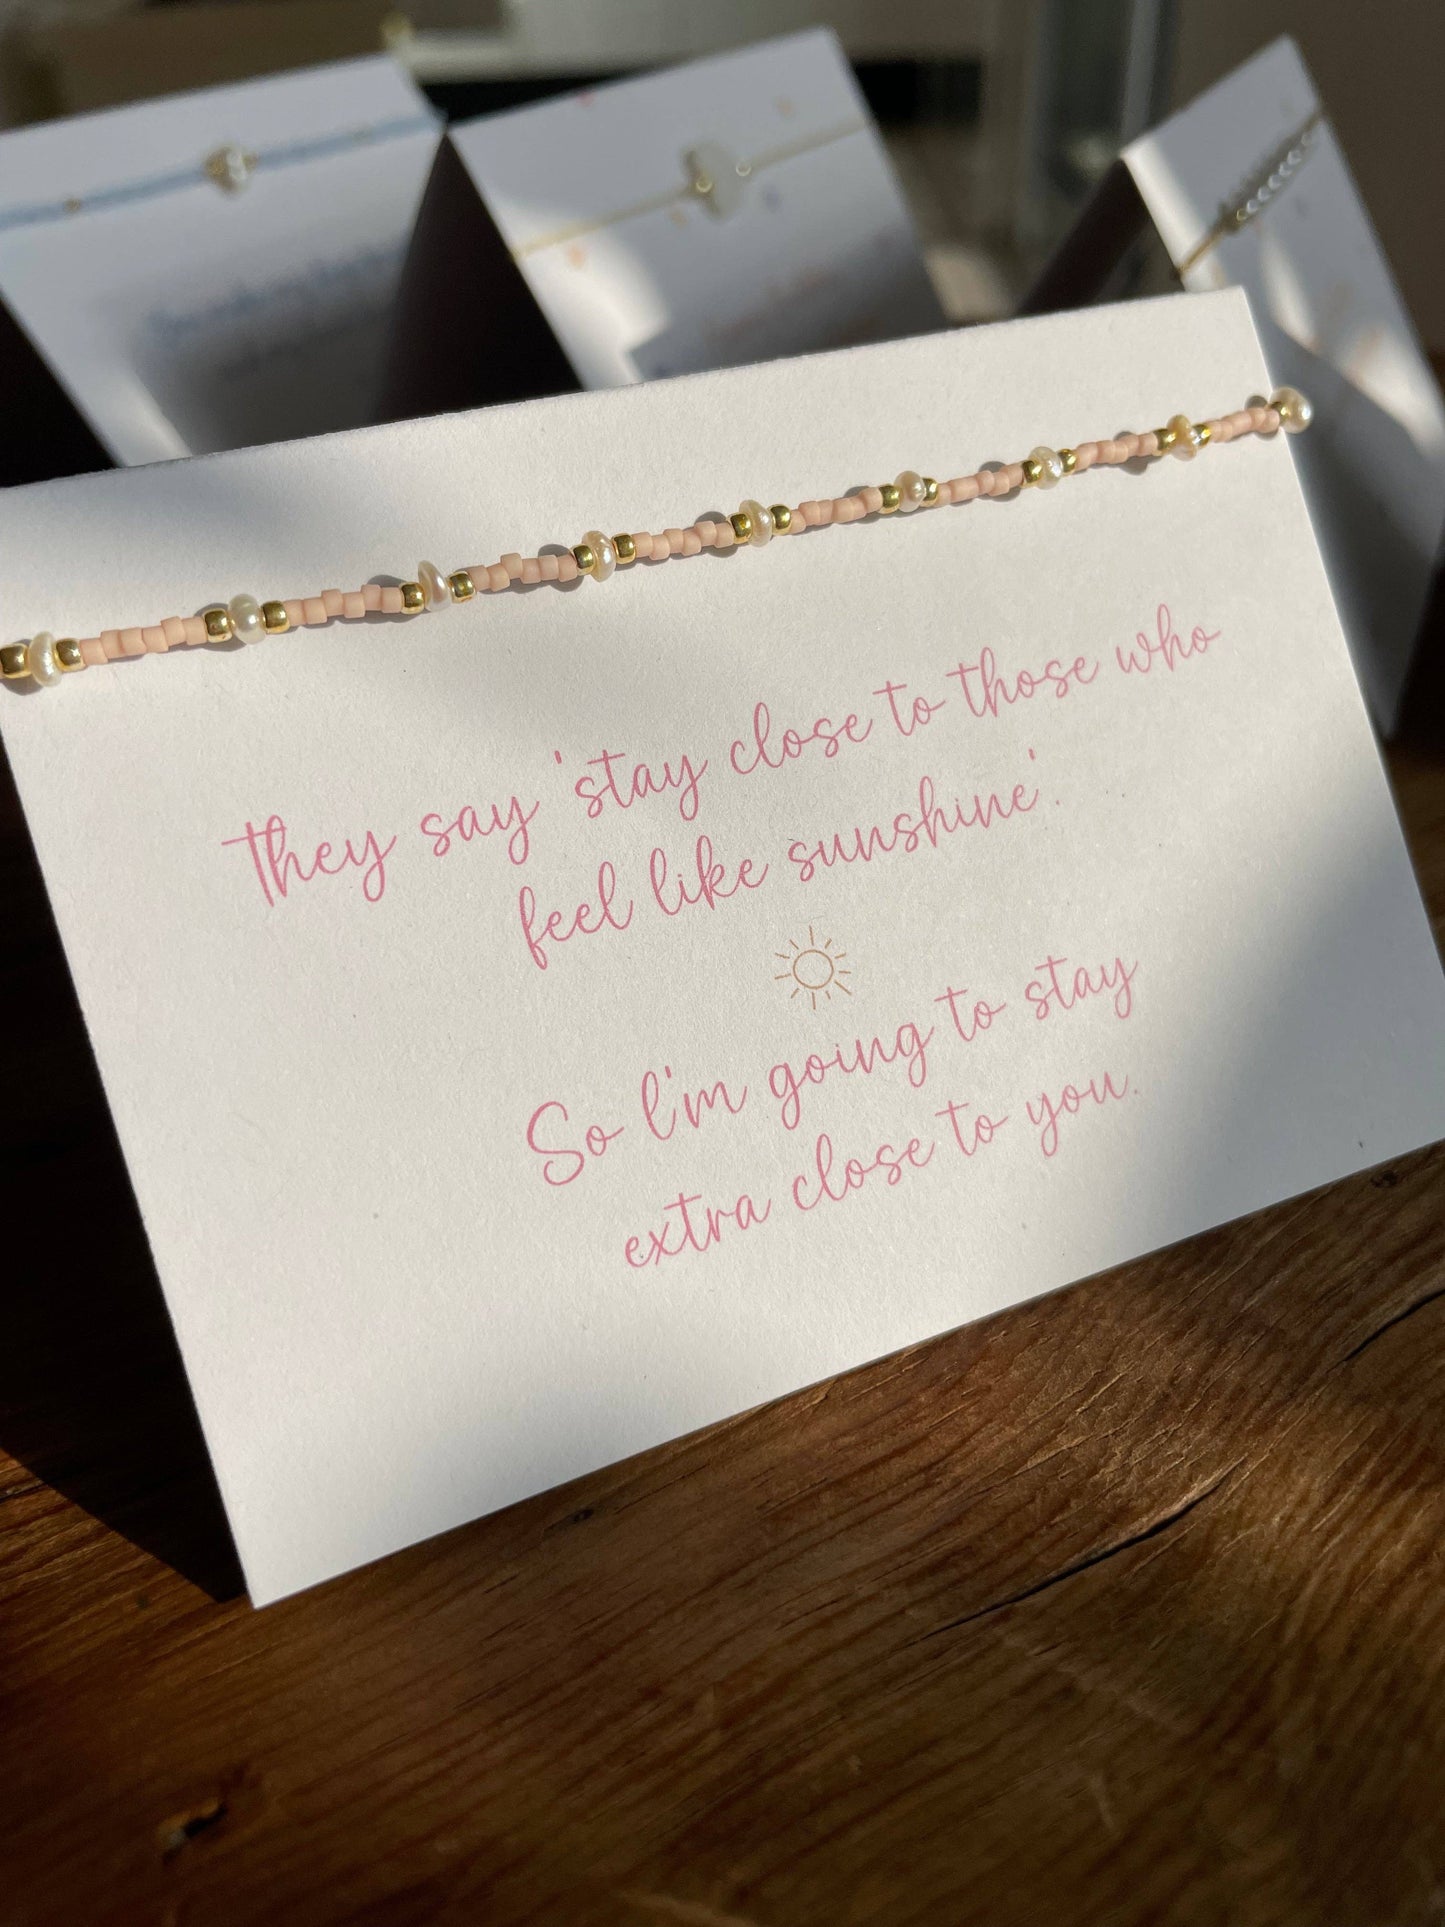 They say 'stay close to those who
feel like sunshine'.
So I'm going to stay
extra close to you.